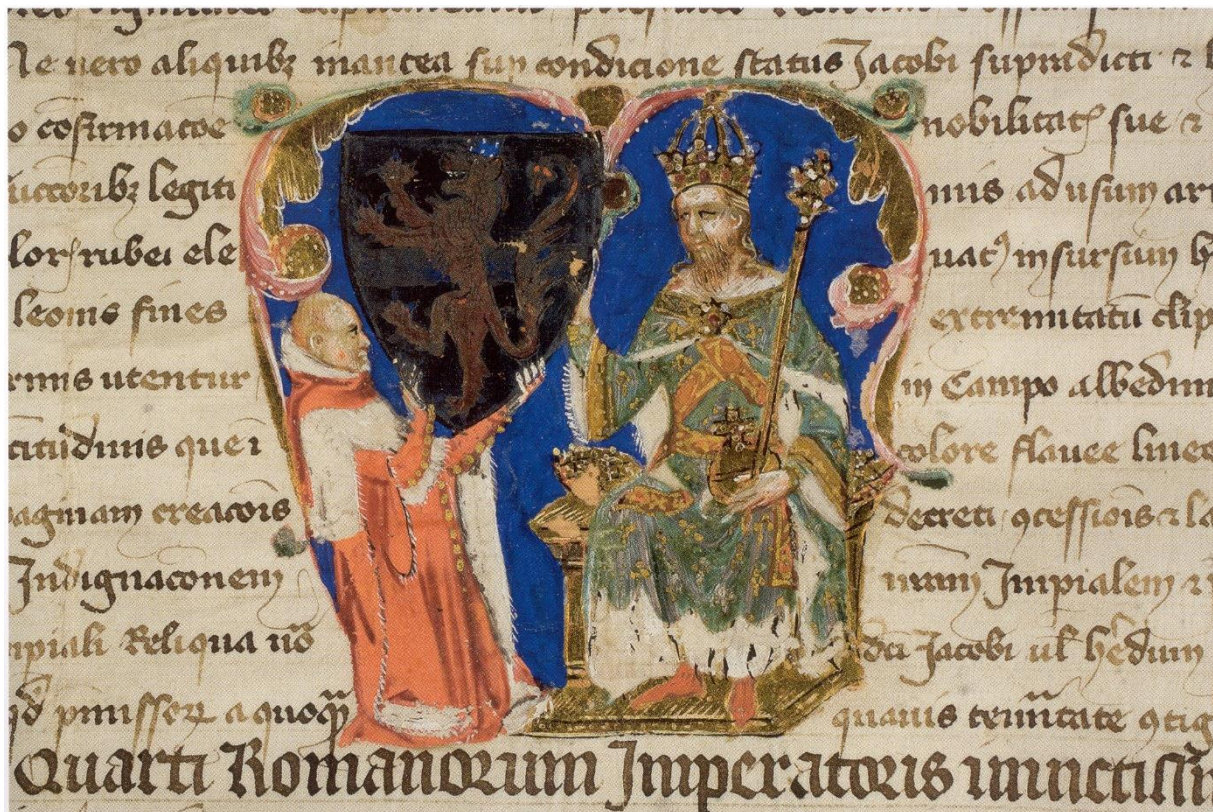 Ne vero aliquibz inantea sup condicione status Jacobi supradicti &
o cōfirmacōe nobilitatꝭ sue &
succoribz legiti mis ad usum ar
lor rubei ele uatꝭ in sursum
leonis fines extremitatū clip
rmis utentur in Campo albedin
citudinis que ī colore flauee linee
paginam creacōis decreti ꝯcessiōis & la
Indignacōnem nrām Impialem &
mpiali Reliqua nō dcī Jacobi ul hedum
qd pmisser a quoqꝫ quauis temītate ꝯtig
Quarti Romanorum Imperatoris inuictissi